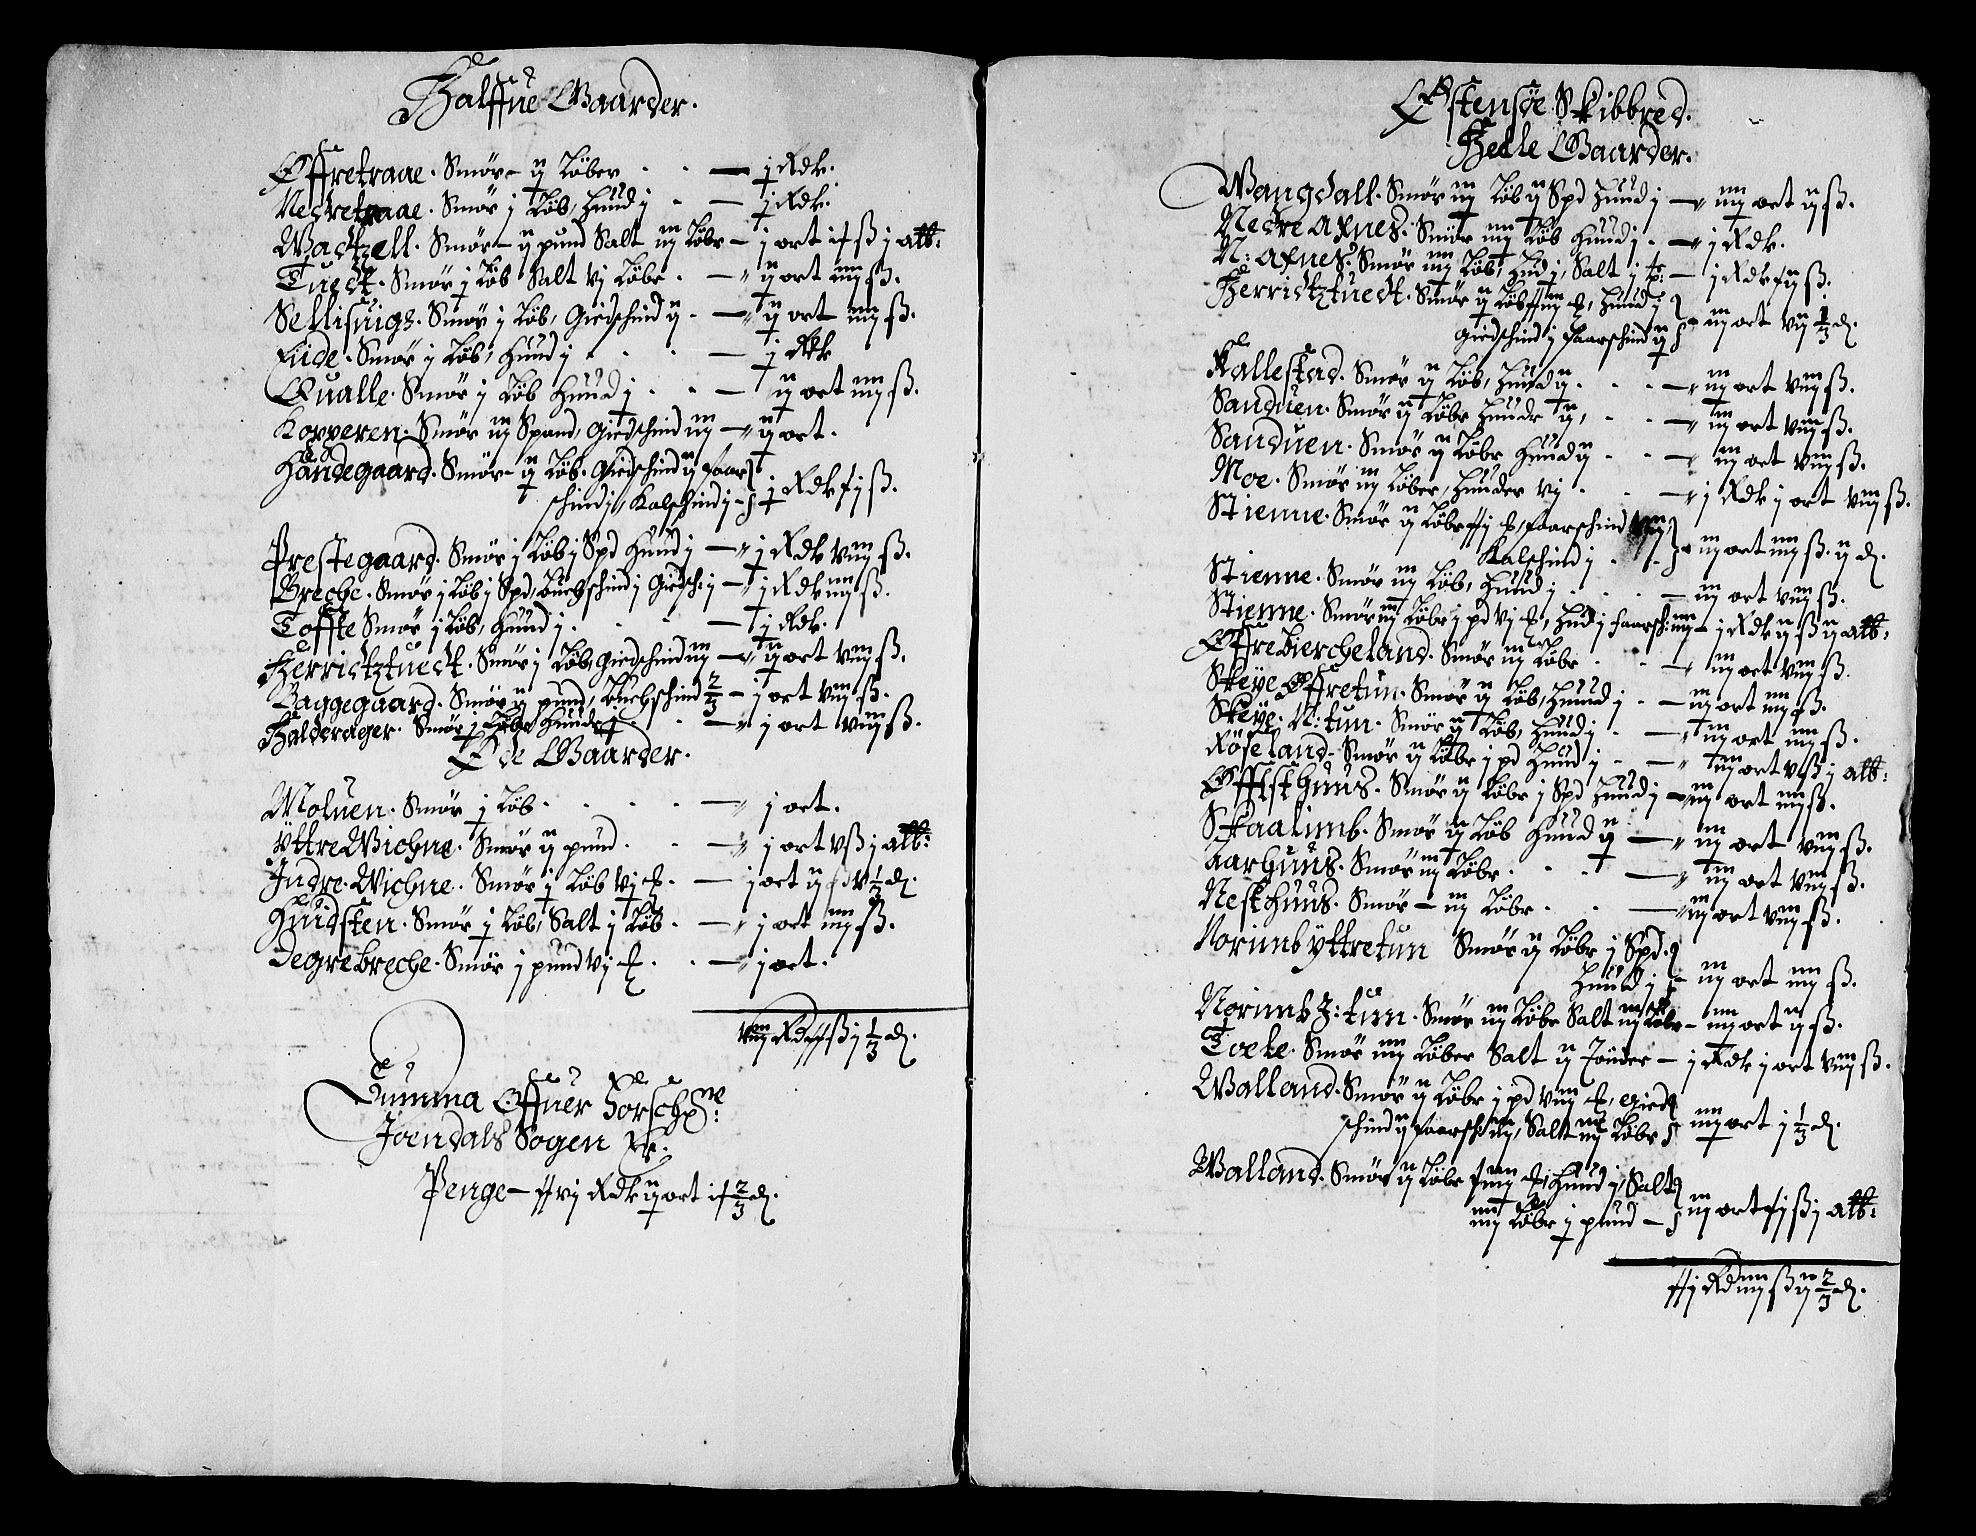 Halffue Gaarder.
Øffretraae. Smør - ij Løber - j Rdk.
Nedretraae. Smør j Løb, Huud j - j Rdk.
Wadtzell. Smør - ij pund Salt iiij Løbr - j ort ix ß j alb:
Tuedt. Smør j Løb Salt vj Løbr. - ij ort iiij ß.
Sellisuigs. Smør j Løb, Giedschind ij - ij ort iiij ß.
Eide. Smør j Løb, Huud j - j Rdk
Qualle. Smør j Løb Huud j - ij ort iiij ß.
Korveren. Smør iij Spand, Giedschind iij - ij ort.
Handegaard. Smør - ij Løb. Giedschind ij faar
schind j, Kalschind j - j Rdk xj ß.
Prestegaard. Smør j Løb j Spd Huud j - j Rdk viij ß.
Breche. Smør j Løb j Spd, Buchschind j Giedsch: j - j Rdk iiij ß.
Toffte Smør j Løb, Huud j - j Rdk.
Herridtztuedt. Smør j Løb, Giedschind iij - ij ort viij ß.
Baggegaard. Smør ij pund, Buchschind 2/3 - j ort viij ß.
Halderager. Smør j Løbr Huudr - j ort viij ß.
Øde Gaarder.
Moluen. Smør j Løb - j ort.
Yttre Wichne. Smør ij pund. - j ort v ß j alb:
Indre. Wichne. Smør j Løb vj - j ort ij ß v 1/3 d.
Huidsten. Smør j Løb, Salt j Løb. - j ort iiij ß.
Degrebreche. Smør j pund vj - j ort.
viij Rd xx ß j 1/3 d.
Summa Offuer
Joendals Sogen Er.
Penge - xxvj Rdk ij ort ix 2/3 d.
Østensøe Skibbred.
Heelle Gaarder.
Wangdall. Smør iij Løb ij Spd Huud j - iiij ort ij ß.
Nedre Axnes. Smør iiij Løb Huud j - j Rdk.
N: Axnes. Smør iiij Løb, Hud j, Salt j - j Rdk xij ß.
Herridtztuedt. Smør ij Løb, Huud j
Giedschind j faarschind ij - iij ort vij 1/3 d.
Kallestad. Smør ij Løb, Huud ij - iij ort viij ß.
Sanduen. Smør ij Løbr Huudr ij, - iij ort viij ß.
Sanduen. Smør ij Løbr Huud ij - iij ort viij ß.
Moe. Smør iij Løber, Huuder vj - j Rdk j ort viij ß.
Stienne. Smør ij Løbr, faarschind
Kalschind j - iij ort iiij ß. ij d.
Stienne. Smør iij Løb, Huud j - iij ort viij ß.
Stienne. Smør iij Løbr j pd vj, Hud j faarsch: iiij - j Rdk ij ß ij alb:
Øffre Biercheland. Smør iij Løbr - iij ort viij ß.
Skeye Øffretun. Smør ij Løb, Huud j - iij ort iiij ß.
Skeye. N: tun. Smør ij Løb, Huud j - iij ort iiij ß.
Røseland. Smør ij Løbr j pd Huud j - iij ort v ß j alb:
Øffsthuus. Smør ij Løbr j Spd Huud j - iij ort iiij ß.
Skaalimb. Smør ij Løb Huud ij - iij ort viij ß.
Aarhuus. Smør iij Løbr. - iij ort viij ß.
Nesthuus. Smør - iij Løbr - iij ort viij ß.
Norimb yttretun Smør ij Løbr j Spd.
Huud j - iij ort iiij ß.
Norimb J: tun. Smør iij Løbr Salt iij Løbr - iiij ort ij ß.
Toele. Smør iiij Løber Salt ij Tønder - j Rdk j ort viij ß.
Walland. Smør ij Løbr j pd viij, Gied
schind ij faarsch iij, Salt iij Løbr - iiij ort j 1/3 d.
Walland. Smør ij Løbr xiiij, Huud j, Salt
iiij Løbr j pund - iij ort xj ß j alb:
xxj Rd iiij ß ij 2/3 d.